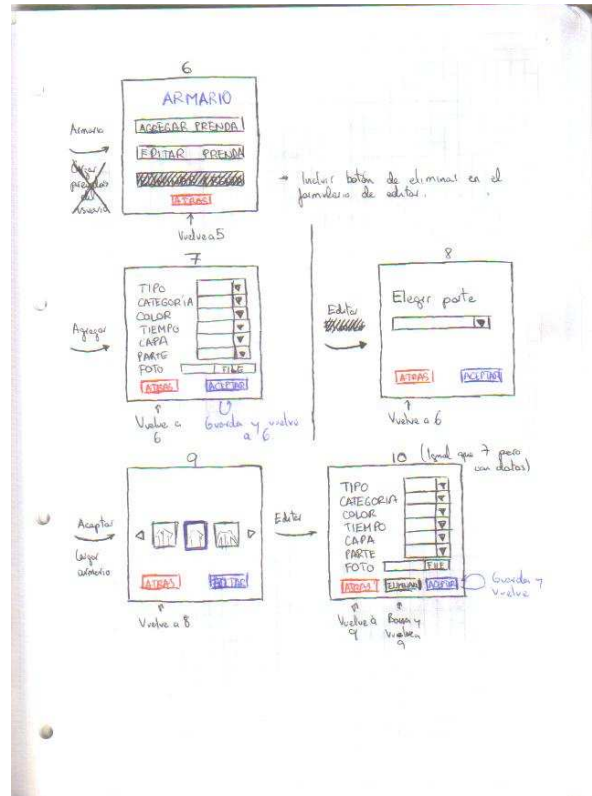 6
ARMARIO
Armario
AGREGAR PRENDA
EDITAR PRENDA
Cargar
prendas
del
usuario
→ Incluir botón de eliminar en el
formulario de editar.
ATRAS
Vuelve a 5
7
TIPO
CATEGORIA
COLOR
TIEMPO
CAPA
PARTE
FOTO FILE
ATRAS ACEPTAR
Agregar
Vuelve a
6
Guarda y vuelve
a 6
8
Editar
Elegir parte
ATRAS ACEPTAR
Vuelve a 6
9
Aceptar
Cargar
armario
ATRAS EDITAR
Vuelve a 8
10 (Igual que 7 pero
con datos)
Editar
TIPO
CATEGORIA
COLOR
TIEMPO
CAPA
PARTE
FOTO FILE
ATRAS ELIMINAR ACEPTAR
Guarda y
vuelve
Vuelve a
9
Borra y
vuelve a
9